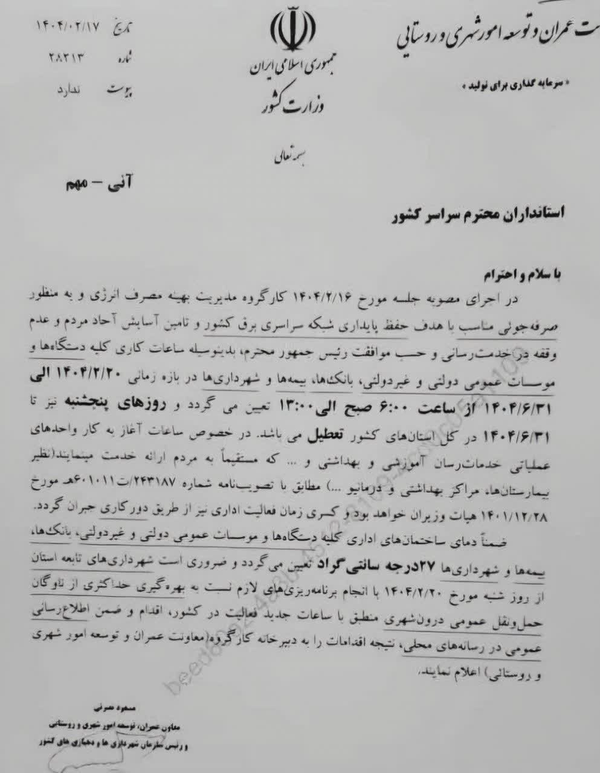 ت عمران و توسعه امور شهری و روستایی
« سرمایه گذاری برای تولید »
جمهوری اسلامی ایران
وزارت کشور
تاریخ ۱۴۰۴/۰۲/۱۷
شماره ۲۸۲۱۳
پیوست ندارد
بسمه تعالی
آنی - مهم
استانداران محترم سراسر کشور
با سلام و احترام
در اجرای مصوبه جلسه مورخ ۱۴۰۴/۲/۱۶ کارگروه مدیریت بهینه مصرف انرژی و به منظور
صرفه‌جوئی مناسب با هدف حفظ پایداری شبکه سراسری برق کشور و تامین آسایش آحاد مردم و عدم
وقفه در خدمت‌رسانی و حسب موافقت رئیس جمهور محترم، بدینوسیله ساعات کاری کلیه دستگاه‌ها و
موسسات عمومی دولتی و غیردولتی، بانک‌ها، بیمه‌ها و شهرداری‌ها در بازه زمانی ۱۴۰۴/۲/۲۰ الی
۱۴۰۴/۶/۳۱ از ساعت ۶:۰۰ صبح الی ۱۳:۰۰ تعیین می گردد و روزهای پنجشنبه نیز تا
۱۴۰۴/۶/۳۱ در کل استان‌های کشور تعطیل می باشد. در خصوص ساعات آغاز به کار واحدهای
عملیاتی خدمات‌رسان آموزشی و بهداشتی و ... که مستقیماً به مردم ارائه خدمت مینمایند(نظیر
بیمارستان‌ها، مراکز بهداشتی و درمانیو ...) مطابق با تصویب‌نامه شماره ۲۴۳۱۸۷/ت۶۰۱۰۱۱هـ مورخ
۱۴۰۱/۱۲/۲۸ هیات وزیران خواهد بود و کسری زمان فعالیت اداری نیز از طریق دورکاری جبران گردد.
ضمناً دمای ساختمان‌های اداری کلیه دستگاه‌ها و موسسات عمومی دولتی و غیردولتی، بانک‌ها،
بیمه‌ها و شهرداری‌ها ۲۷درجه سانتی‌گراد تعیین می‌گردد و ضروری است شهرداری‌های تابعه استان
از روز شنبه مورخ ۱۴۰۴/۲/۲۰ با انجام برنامه‌ریزی‌های لازم نسبت به بهره‌گیری حداکثری از ناوگان
حمل‌ونقل عمومی درون‌شهری منطبق با ساعات جدید فعالیت در کشور، اقدام و ضمن اطلاع‌رسانی
عمومی در رسانه‌های محلی، نتیجه اقدامات را به دبیرخانه کارگروه(معاونت عمران و توسعه امور شهری
و روستائی) اعلام نمایند.
مسعود نصرتی
معاون عمران، توسعه امور شهری و روستایی
و رئیس سازمان شهرداری ها و دهیاری های کشور